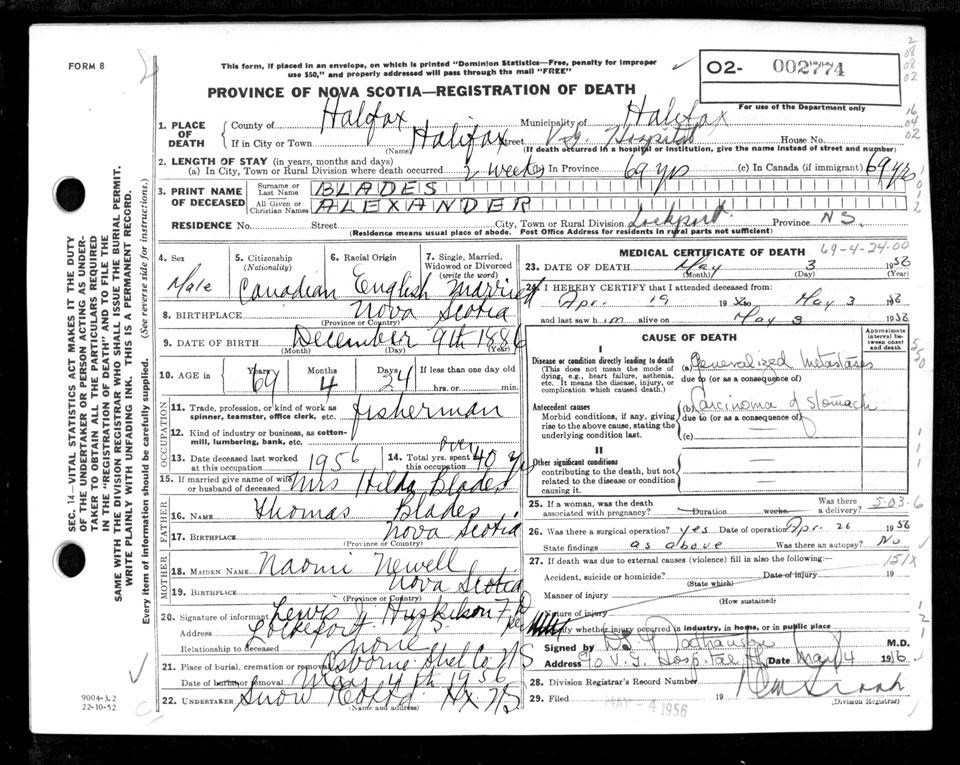 FORM 8
This form, if placed in an envelope, on which is printed "Dominion Statistics—Free, penalty for improper
use $50," and properly addressed will pass through the mail "FREE"
02- 002774
For use of the Department only
PROVINCE OF NOVA SCOTIA—REGISTRATION OF DEATH
1. PLACE OF DEATH
County of Halifax Municipality of Halifax
If in City or Town Halifax Street V.G. Hospital House No.
(Name) (If death occurred in a hospital or institution, give the name instead of street and number)
2. LENGTH OF STAY (in years, months and days)
(a) In City, Town or Rural Division where death occurred 2 weeks In Province 69 yrs (c) In Canada (if immigrant) 69 yrs
3. PRINT NAME OF DECEASED
Surname or Last Name BLADES
All Given or Christian Names ALEXANDER
RESIDENCE No. Street City, Town or Rural Division Lockport Province N.S.
(Residence means usual place of abode. Post Office Address for residents in rural parts not sufficient)
4. Sex Male
5. Citizenship (Nationality) Canadian
6. Racial Origin English
7. Single, Married, Widowed or Divorced (write the word) Married
8. BIRTHPLACE Nova Scotia
(Province or Country)
9. DATE OF BIRTH December 9th 1886
(Month) (Day) (Year)
10. AGE in Years 69 Months 4 Days 24 If less than one day old hrs. or min.
OCCUPATION
11. Trade, profession, or kind of work as spinner, teamster, office clerk, etc. fisherman
12. Kind of industry or business, as cotton-mill, lumbering, bank, etc.
13. Date deceased last worked at this occupation 1956
14. Total yrs. spent in this occupation over 40 yrs
15. If married give name of wife or husband of deceased Mrs Hilda Blades
FATHER
16. NAME Thomas Blades
17. BIRTHPLACE Nova Scotia
(Province or Country)
MOTHER
18. MAIDEN NAME Naomi Newell
19. BIRTHPLACE Nova Scotia
(Province or Country)
20. Signature of informant Lewis J Huskilson F.D
Address Lockeport N.S
Relationship to deceased none
21. Place of burial, cremation or removal Osborne Shel Co, NS
Date of burial or removal May 4th 1956
22. UNDERTAKER Snow Co Ltd Hx NS
(Name and address)
9004-3.2
22-10-52
SEC. 14—VITAL STATISTICS ACT MAKES IT THE DUTY
OF THE UNDERTAKER OR PERSON ACTING AS UNDER-
TAKER TO OBTAIN ALL THE PARTICULARS REQUIRED
IN THE "REGISTRATION OF DEATH" AND TO FILE THE
SAME WITH THE DIVISION REGISTRAR WHO SHALL ISSUE THE BURIAL PERMIT.
WRITE PLAINLY WITH UNFADING INK. THIS IS A PERMANENT RECORD.
Every item of information should be carefully supplied. (See reverse side for instructions.)
MEDICAL CERTIFICATE OF DEATH
69-4-24-00
23. DATE OF DEATH May 3 1956
(Month) (Day) (Year)
24. I HEREBY CERTIFY that I attended deceased from:
Apr. 19 May 3
and last saw him alive on May 3 1956
CAUSE OF DEATH
Approximate interval between onset and death
I
Disease or condition directly leading to death
(This does not mean the mode of dying, e.g., heart failure, asthenia, etc. It means the disease, injury, or complication which caused death.)
(a) Generalized Metastases
due to (or as a consequence of)
Antecedent causes
Morbid conditions, if any, giving rise to the above cause, stating the underlying condition last.
(b) Carcinoma of Stomach
due to (or as a consequence of)
(c)
II
Other significant conditions
contributing to the death, but not related to the disease or condition causing it.
25. If a woman, was the death associated with pregnancy? Duration weeks Was there a delivery?
5-03-6
26. Was there a surgical operation? yes Date of operation Apr. 26 1956
State findings as above Was there an autopsy? No
27. If death was due to external causes (violence) fill in also the following:
151X
Accident, suicide or homicide? Date of injury 19
(State which)
Manner of injury
(How sustained)
Nature of injury
Specify whether injury occurred in industry, in home, or in public place
Signed by M.D.
Address c/o V.G. Hospital Hx Date May 4 1956
28. Division Registrar's Record Number
29. Filed MAY - 4 1956 19
(Division Registrar)